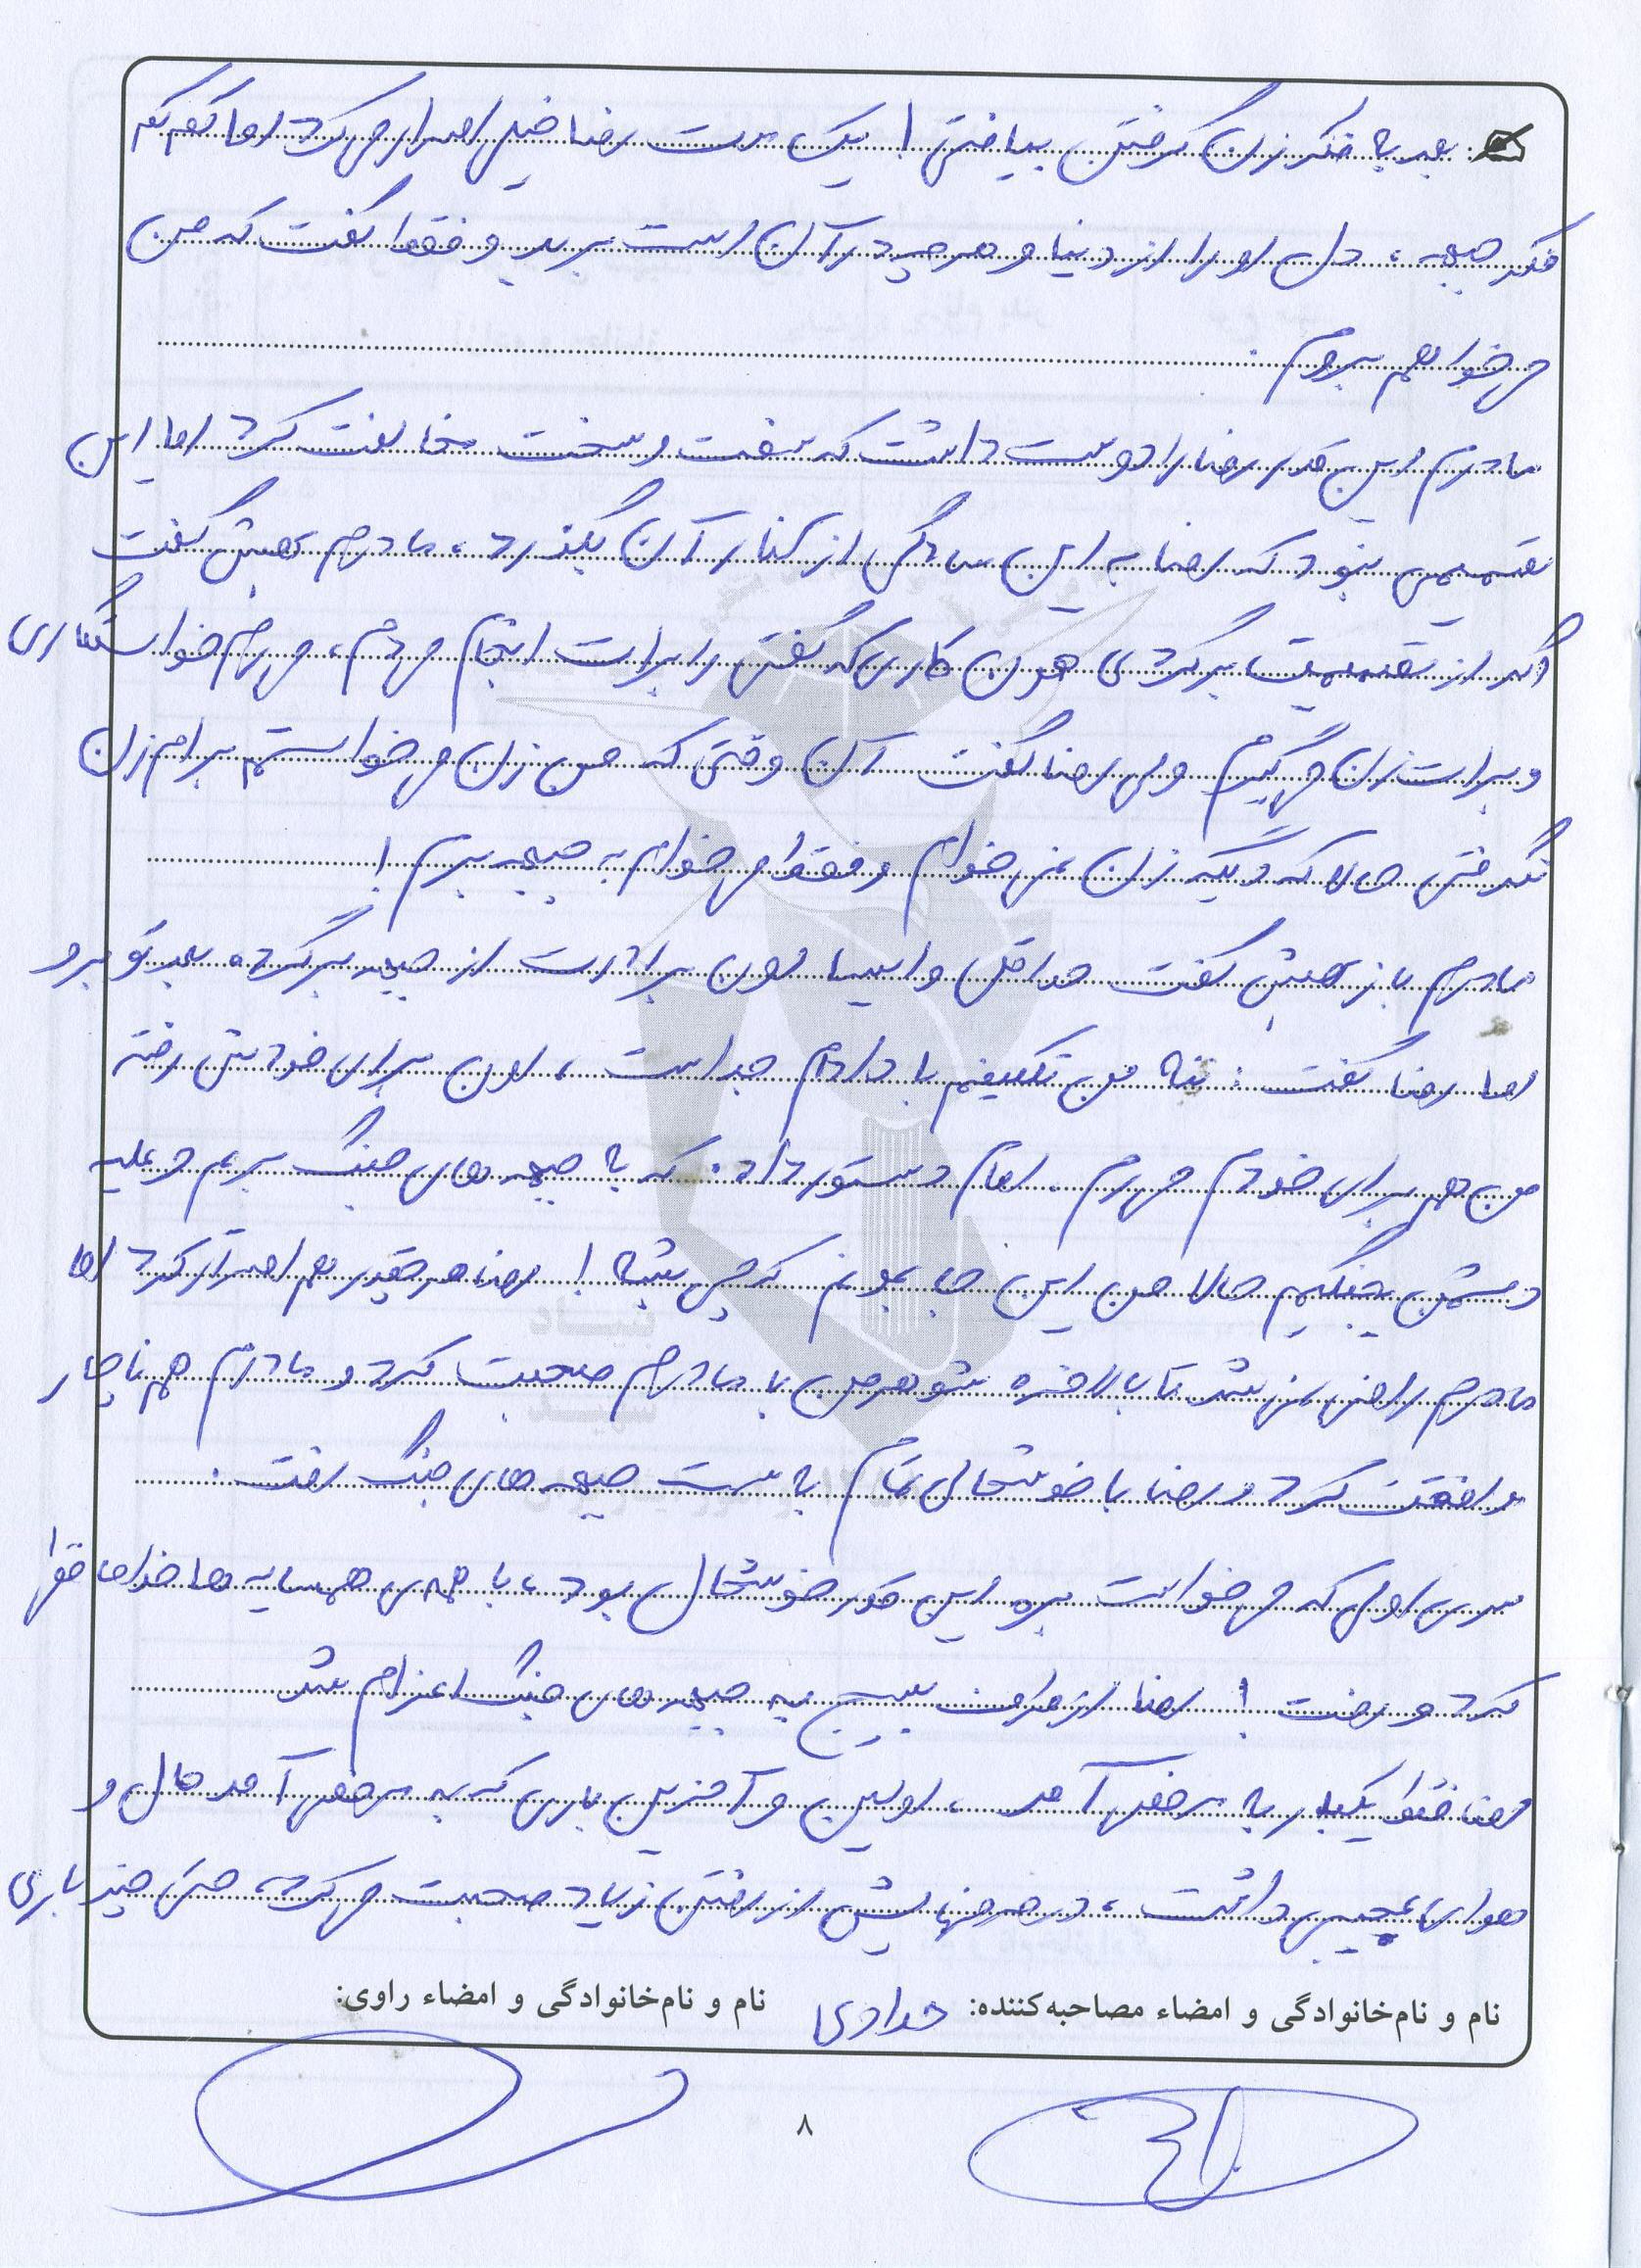 بعد به فکر زن گرفتن بیافتی! یک مدت رضا خیلی اصرار می‌کرد اما کم کم
فکر جبهه، دل او را از دنیا و هر چه در آن است برید و فقط گفت که من
می‌خواهم بروم.
مادرم این قدر رضا را دوست داشت که سفت و سخت مخالفت کرد اما این
تصمیمی نبود که رضا به این سادگی از کنار آن بگذرد، مادرم بهش گفت
اگر از تصمیمت برگردی همون کاری که گفتی را برایت انجام می‌دم، می‌رم خواستگاری
و برات زن می‌گیرم ولی رضا گفت آن وقتی که من زن می‌خواستم برام زن
نگرفتی حالا که دیگه زن نمی‌خوام و فقط می‌خوام به جبهه برم!
مادرم باز بهش گفت حداقل وایسا اون برادرت از جبهه برگرده بعد تو برو
اما رضا گفت: ننه من تکلیفم با دادام جداست، اون برای خودش رفته
من هم برای خودم می‌رم. امام دستور داده که به جبهه‌های جنگ بریم و علیه
دشمن بجنگیم حالا من این جا بمونم که چی بشه! رضا هر چقدر هم اصرار کرد اما
مادرم راضی نمی‌شد تا بالاخره شوهر من با مادرم صحبت کرد و مادرم هم ناچار
موافقت کرد و رضا با خوشحالی تمام به سمت جبهه‌های جنگ رفت.
سری اولی که می‌خواست بره این قدر خوشحال بود، با همه‌ی همسایه‌ها خداحافظی
کرد و رفت! رضا از طرف بسیج به جبهه‌های جنگ اعزام شد
رضا فقط یکبار به مرخصی آمد، اولین و آخرین باری که به مرخصی آمد حال و
هوای عجیبی داشت، در حرفهایش از رفتن زیاد صحبت می‌کرد، حتی چند باری
نام و نام‌خانوادگی و امضاء مصاحبه‌کننده: حدادی نام و نام‌خانوادگی و امضاء راوی:
۸